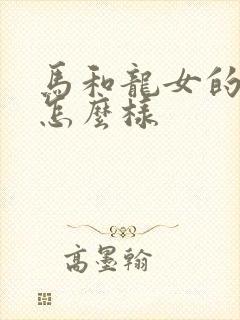 馬和龍女的
怎麼樣
高墨翰